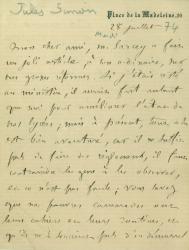 Jules Simon
Place de la Madeleine, 10
28 juillet 74
Mardi
Mon cher ami, M. Sarcey a fait
un joli article, à son ordinaire, sur
nos grosses réformes. Si j'étais resté
au ministère, il aurait fait autant
que moi pour améliorer l'état de
nos lycées, mais à présent, tout cela
est bien aventuré, car il ne suffit
pas de faire des règlements, il faut
contraindre les gens à les observer,
et ce n'est pas facile; vous savez
que nos pauvres camarades ont
leurs cahiers et leurs routines, et
qu'ils ne se soucient pas d'en démarrer